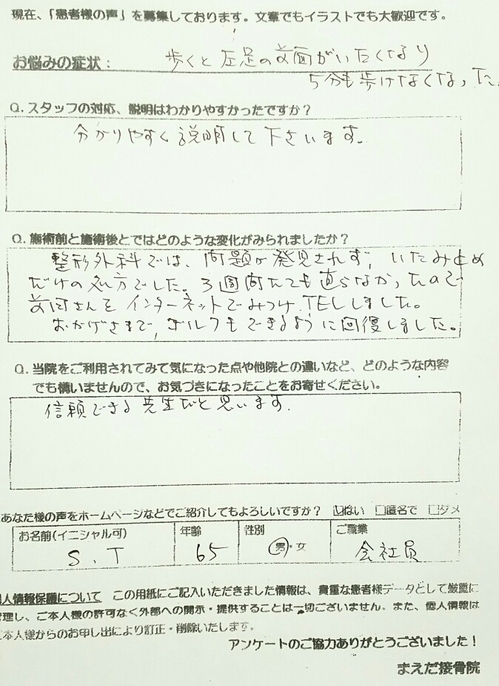 現在、「患者様の声」を募集しております。文章でもイラストでも大歓迎です。
お悩みの症状：歩くと左足の前面がいたくなり
5分も歩けなくなった
Q.スタッフの対応、説明はわかりやすかったですか？
分かりやすく説明して下さいます。
Q.施術前と施術後とではどのような変化がみられましたか？
整形外科では、問題が発見されず、いたみ止め
だけの処方でした。3週間たっても直らなかったので
前田さんをインターネットでみつけTELしました。
おかげさまで、ゴルフもできるように回復しました。
Q.当院をご利用されてみて気になった点や他院との違いなど、どのような内容
でも構いませんので、お気づきになったことをお寄せください。
信頼できる先生だと思います。
あなた様の声をホームページなどでご紹介してもよろしいですか？ ☑はい □匿名で □ダメ
お名前(イニシャル可) 年齢 性別 ご職業
S.T 65 男・女 会社員
個人情報保護について この用紙にご記入いただきました情報は、貴重な患者様データとして厳重に
管理し、ご本人様の許可なく外部への開示・提供することは一切ございません。また、個人情報は
ご本人様からのお申し出により訂正・削除いたします。
アンケートのご協力ありがとうございました！
まえだ接骨院